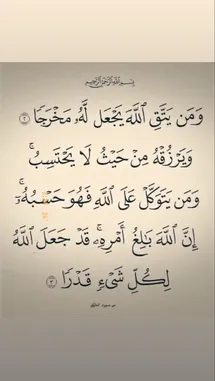 بِسْمِ اللَّهِ الرَّحْمَٰنِ الرَّحِيمِ
وَمَن يَتَّقِ ٱللَّهَ يَجْعَل لَّهُۥ مَخْرَجًا ٢
وَيَرْزُقْهُ مِنْ حَيْثُ لَا يَحْتَسِبُ ۚ
وَمَن يَتَوَكَّلْ عَلَى ٱللَّهِ فَهُوَ حَسْبُهُۥٓ ۚ
إِنَّ ٱللَّهَ بَٰلِغُ أَمْرِهِۦ ۚ قَدْ جَعَلَ ٱللَّهُ
لِكُلِّ شَىْءٍ قَدْرًا ٣
من سورة الطلاق